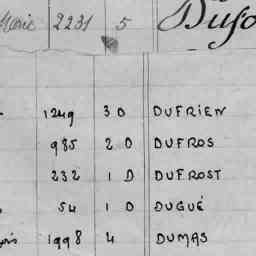 Marie 2231 5
1249 3 D DUFRIEN
985 2 D DUFROS
232 1 D DUFROST
54 1 D DUGUÉ
1998 4 DUMAS